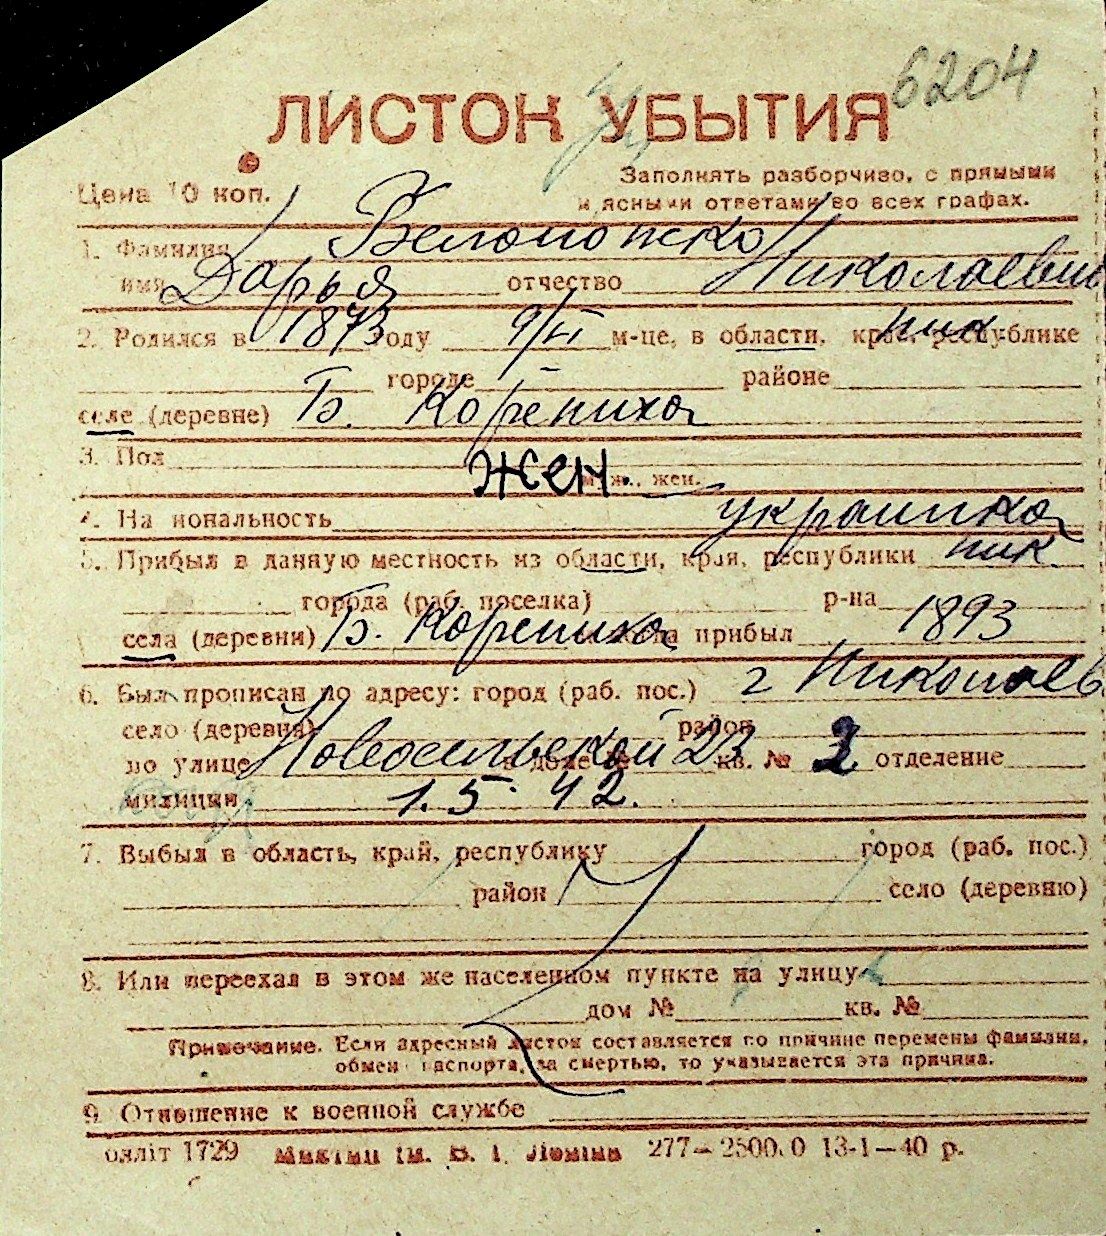 6204
ЛИСТОК УБЫТИЯ
Цена 10 коп.
Заполнять разборчиво, с прямыми
и ясными ответами во всех графах.
1. Фамилия
имя Дарья отчество Николаевн
2. Родился в 1873 году 9/VI м-це, в области, края, республике ник
городе районе
селе (деревне) Б. Корениха
3. Пол жен муж., жен.
4. Национальность украинка
5. Прибыл в данную местность из области, края, республики ник
города (раб. поселка) р-на
села (деревни) Б. Корениха когда прибыл 1893
6. Был прописан по адресу: город (раб. пос.) г Николаев
село (деревня) район
по улице Новосельской 23 в доме № кв. № 2 отделение
милиции 1.5. 42.
7. Выбыл в область, край, республику город (раб. пос.)
район село (деревню)
8. Или переехал в этом же населенном пункте на улицу
дом № кв. №
Примечание. Если адресный листок составляется по причине перемены фамилии,
обмен паспорта, за смертью, то указывается эта причина.
9. Отношение к военной службе
облліт 1729 277—25000 13-1—40 р.